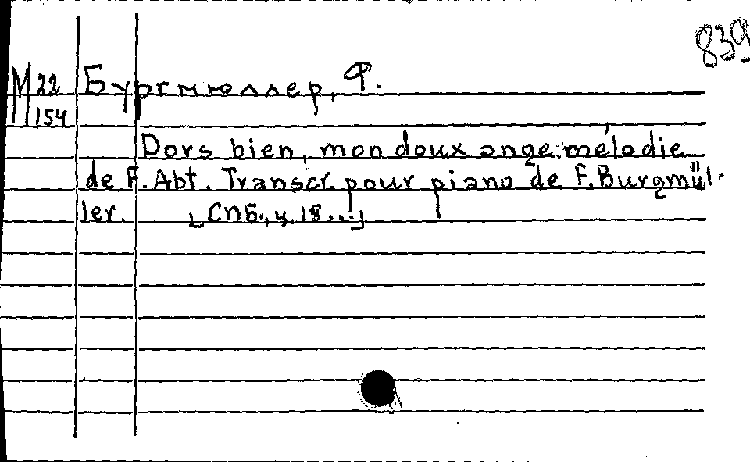 839
М 22/154 Бургмюллер, Ф.
Dors bien, mon doux ange: mélodie
de F. Abt. Transcr. pour piano de F. Burgmül-
ler. [СПб., ц. 18...]